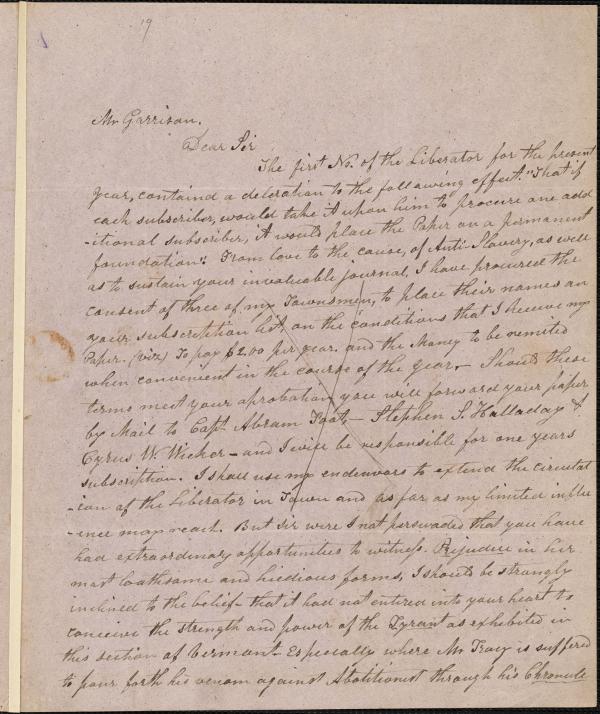 19
Mr Garrison.
Dear Sir
The first No. of the Liberator for the present
year, containd a decleration to the following effect. "That if
each subscriber, would take it upon him to procure one add
-itional subscriber, it would place the Paper on a permanent
foundation". From love to the cause, of Anti-Slavery, as well
as to sustain your invaluable journal, I have procured the
consent of three of my Townsmen, to place their names on
your subscription list, on the conditions that I receive my
Paper. (viz) To pay $2.00 per year. and the Money to be remited
when convenient in the course of the year,- Should these
terms meet your aprobation, you will forward your paper
by Mail to Capt Abram Foot,- Stephen S. Halladay &
Cyrus W. Wicker - and I will be responsible for one years
subscription. I shall use my endeavors to extend the circulat
-ion of the Liberator in Town and as far as my limited influ
-ence may reach. But Sir were I not perswaded that you have
had extraordinary opportunities to witness. Prejudice in her
most loathsome and hiedious forms, I should be strongly
inclined to the belief that it had not entired into your heart to
conceive the strength and power of the Tyrant as exhibited in
this section of Vermont - Especially where Mr Tracy is suffered
to pour forth his venom against Abolitionist through his Chronicle